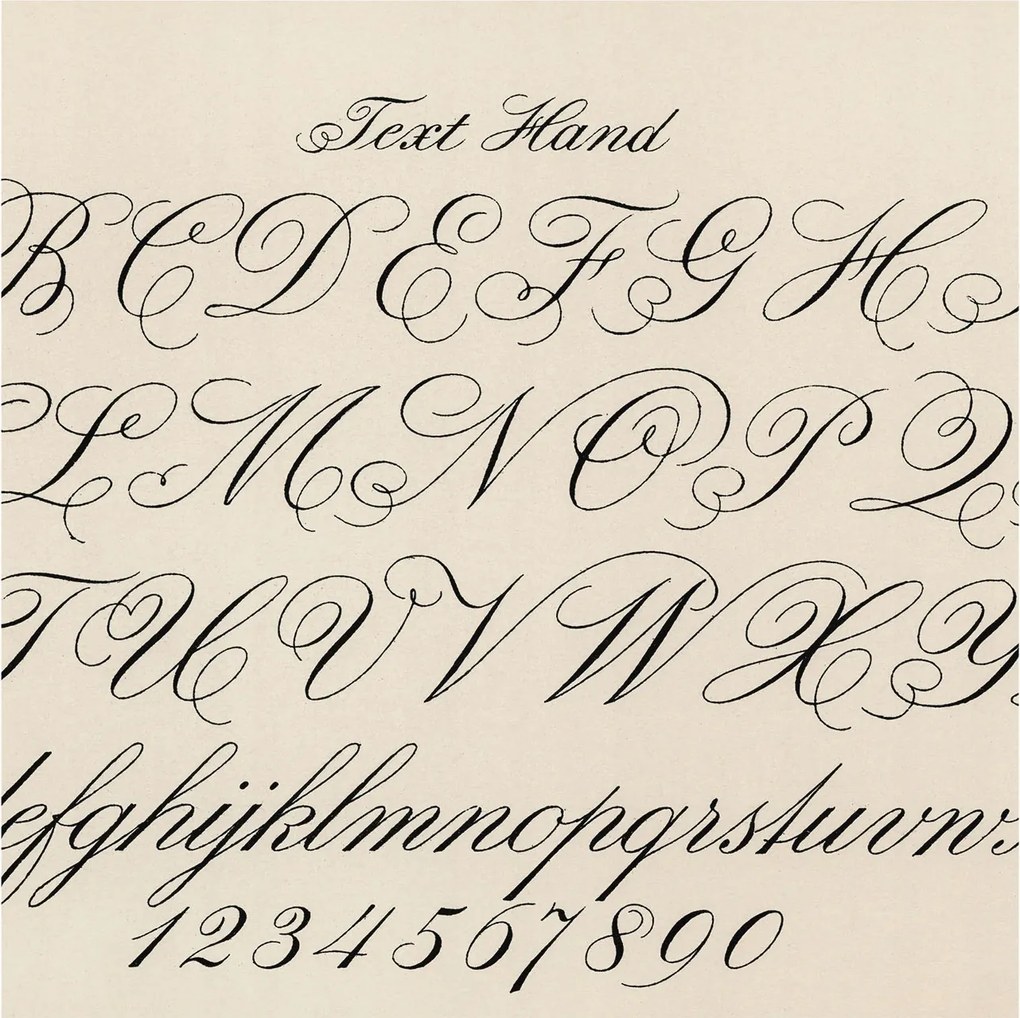 Text Hand
B C D E F G H
L M N O P Q
T U V W X Y
defghijklmnopqrstuvw
1234567890